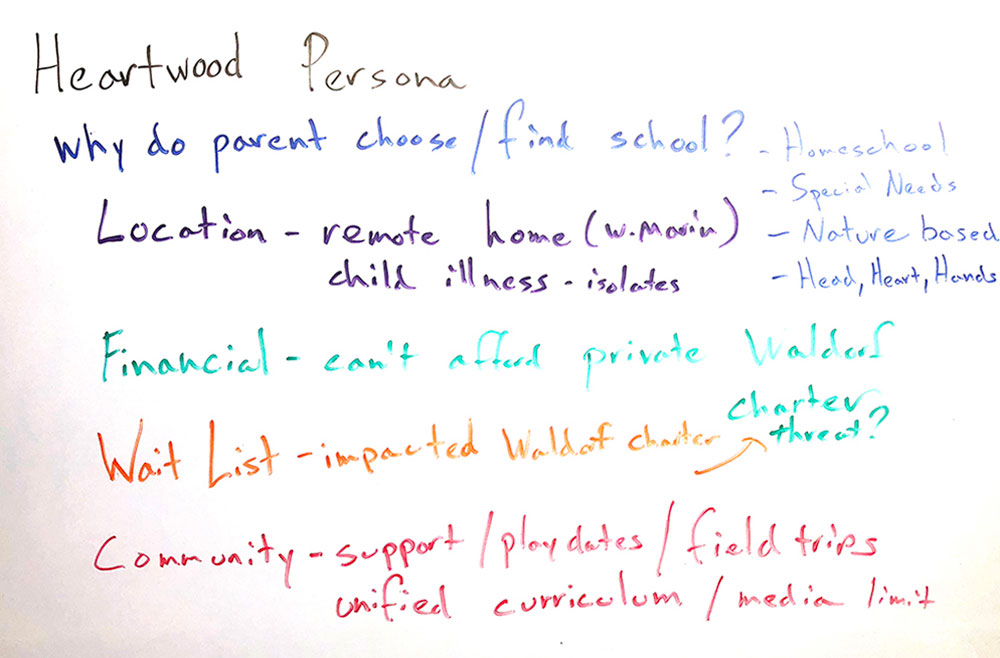 Heartwood Persona
why do parent choose/find school?
- Homeschool
- Special Needs
- Nature based
- Head, Heart, Hands
Location - remote home (w. Marin)
child illness - isolates
Financial - can't afford private Waldorf
charter
threat?
Wait List - impacted Waldof charter
Community - support/playdates/field trips
unified curriculum / media limit